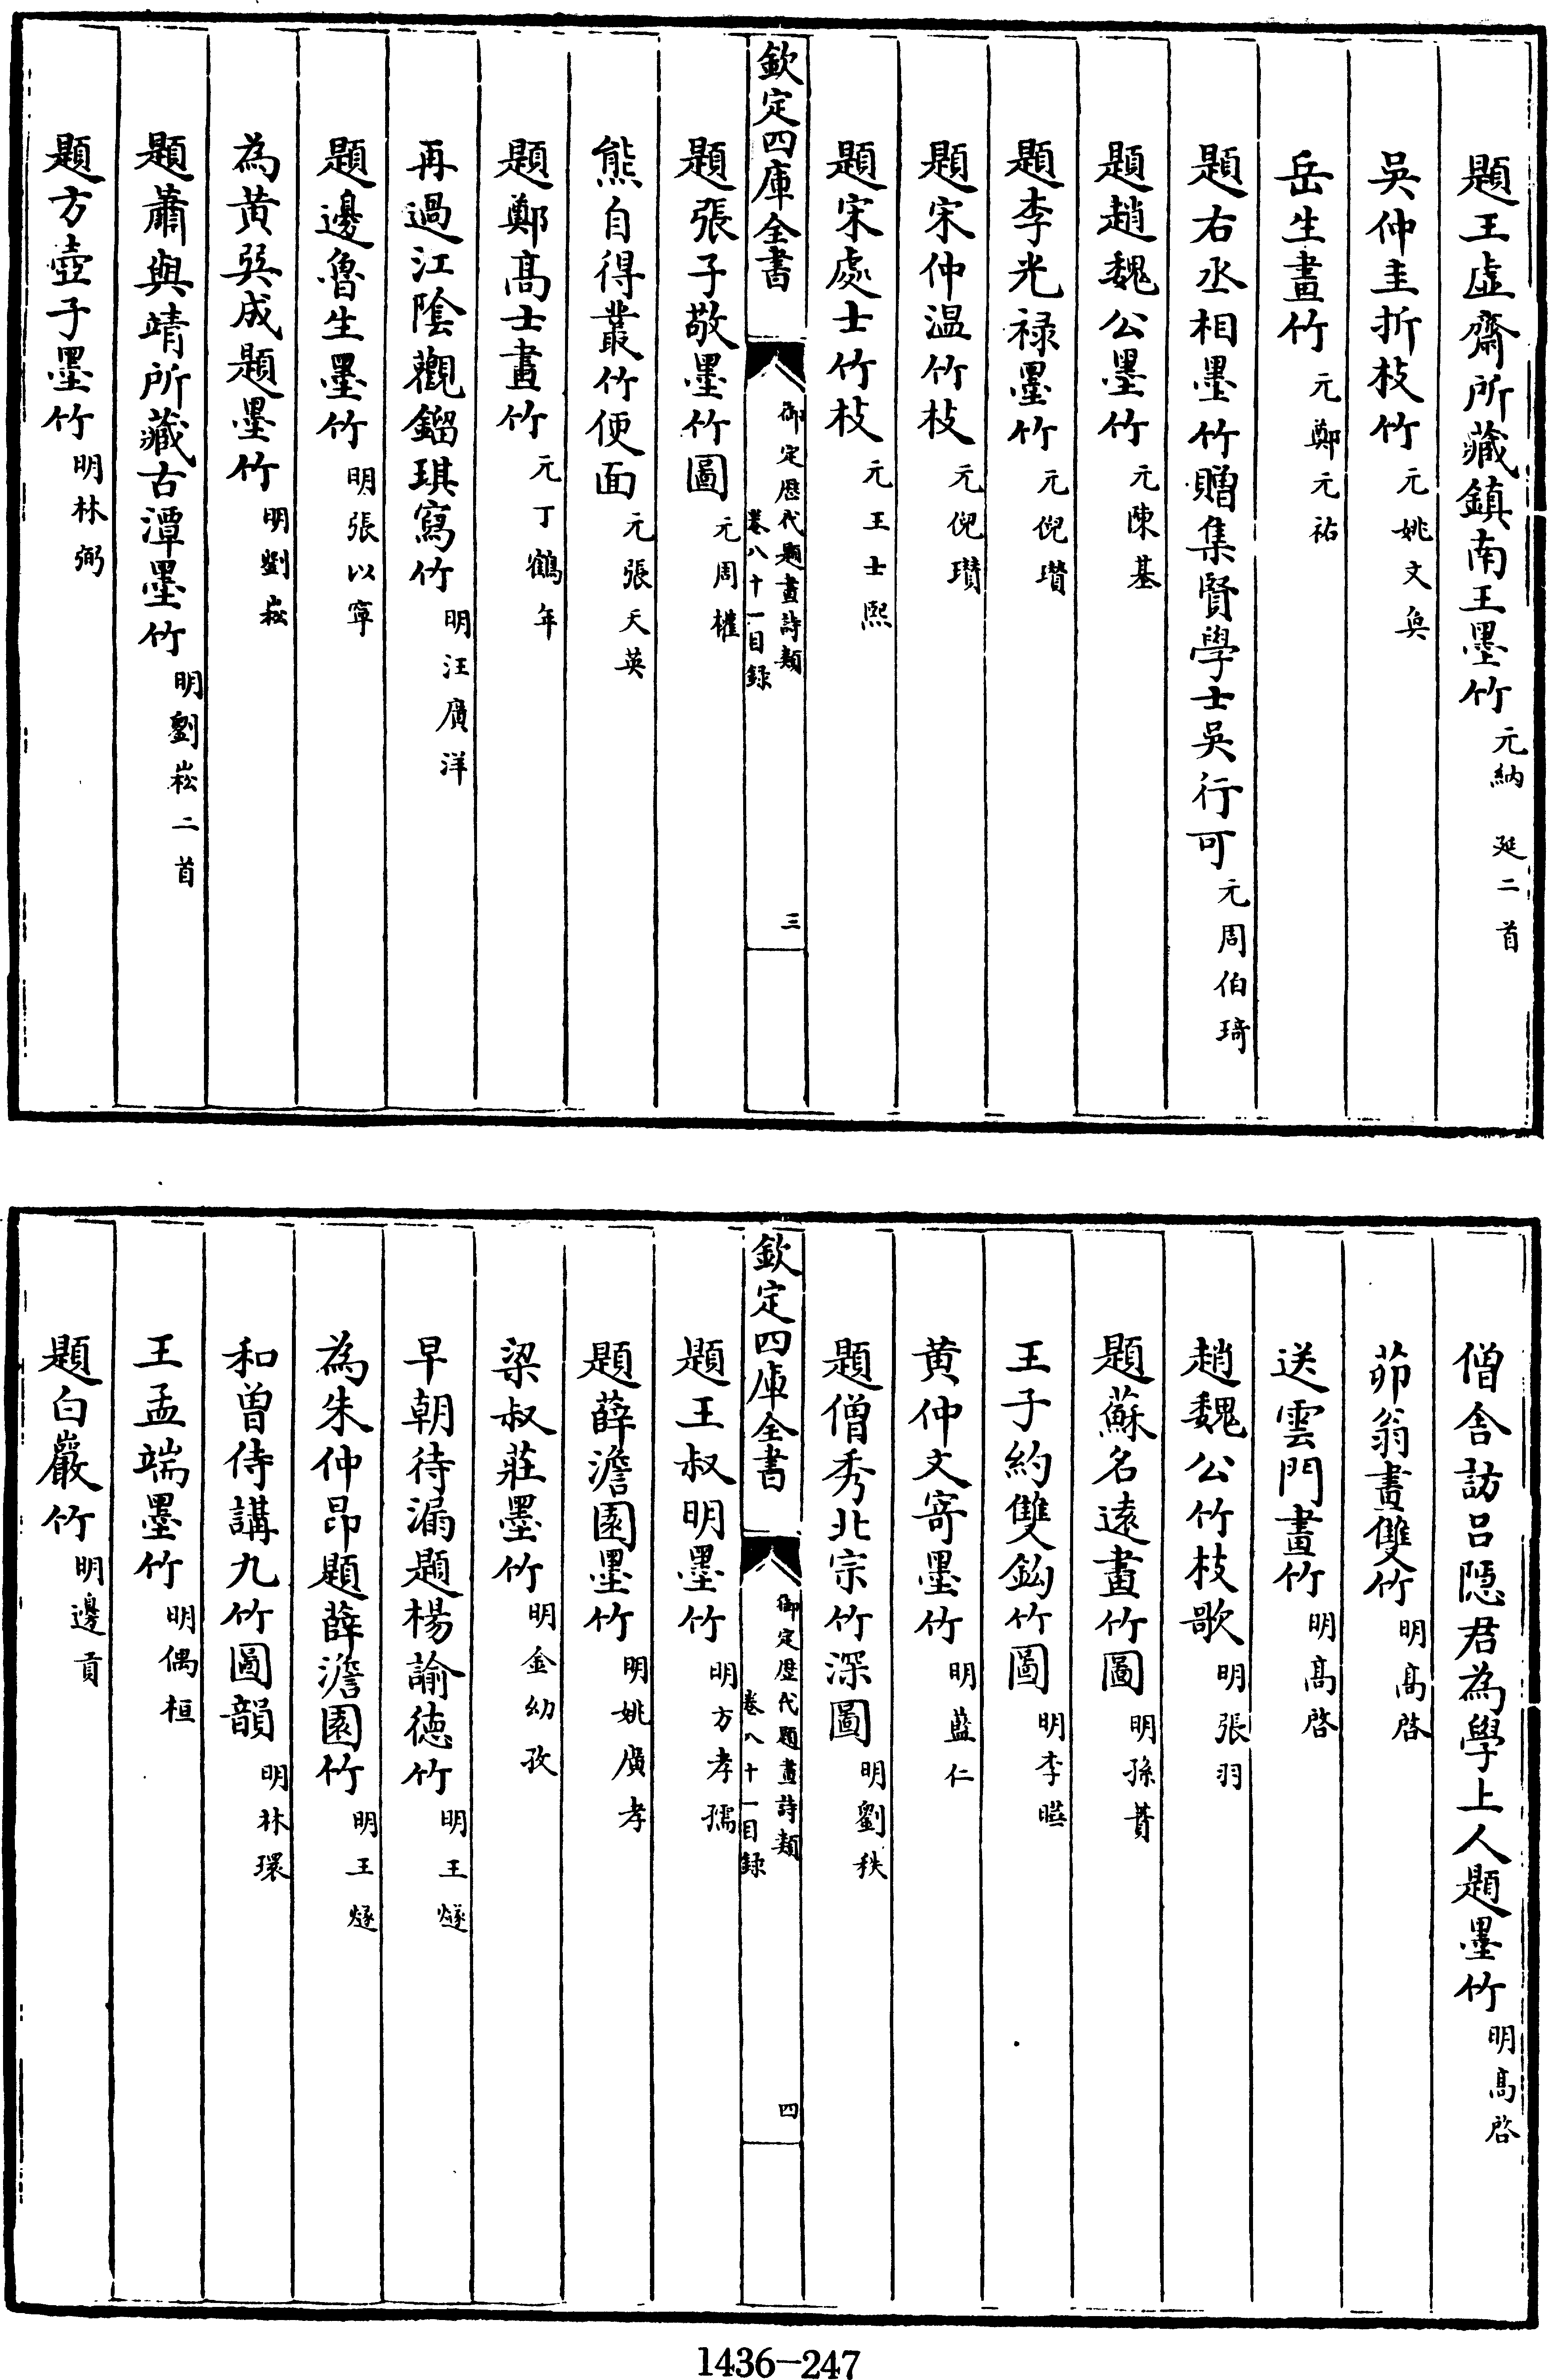 題王虛齋所藏鎮南王墨竹 元納 延二首
吳仲圭折枝竹 元姚文奐
岳生畫竹 元鄭元祐
題右丞相墨竹贈集賢學士吳行可 元周伯琦
題趙魏公墨竹 元陳基
題李光禄墨竹 元倪瓚
題宋仲温竹枝 元倪瓚
題宋處士竹枝 元王士熙
欽定四庫全書
御定歷代題畫詩類
卷八十一目録
三
題張子敬墨竹圖 元周權
熊自得叢竹便面 元張天英
題鄭髙士畫竹 元丁鶴年
再過江陰觀鎦琪寫竹 明汪廣洋
題邊魯生墨竹 明張以寧
為黄㢲成題墨竹 明劉崧
題蕭與靖所藏古潭墨竹 明劉崧二首
題方壺子墨竹 明林弼
僧舍訪吕隠君為學上人題墨竹 明髙啓
茆翁畫雙竹 明髙啓
送雲門畫竹 明髙啓
趙魏公竹枝歌 明張羽
題蘇名逺畫竹圖 明孫蕡
王子約雙鈎竹圖 明李曄
黄仲文寄墨竹 明藍仁
題僧秀北宗竹深圖 明劉秩
欽定四庫全書
御定歷代題畫詩類
卷八十一目録
四
題王叔明墨竹 明方孝孺
題薛澹園墨竹 明姚廣孝
梁叔莊墨竹 明金幼孜
早朝待漏題楊諭徳竹 明王燧
為朱仲昂題薛澹園竹 明王燧
和曽侍講九竹圖韻 明林環
王孟端墨竹 明偶桓
題白巖竹 明邊貢
1436-247